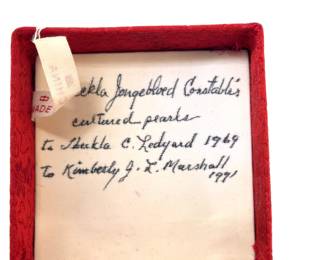 Thekla Jongebloed Constable's
cultured pearls
to Thekla C. Ledyard 1969
to Kimberly J. L. Marshall
1991
MADE